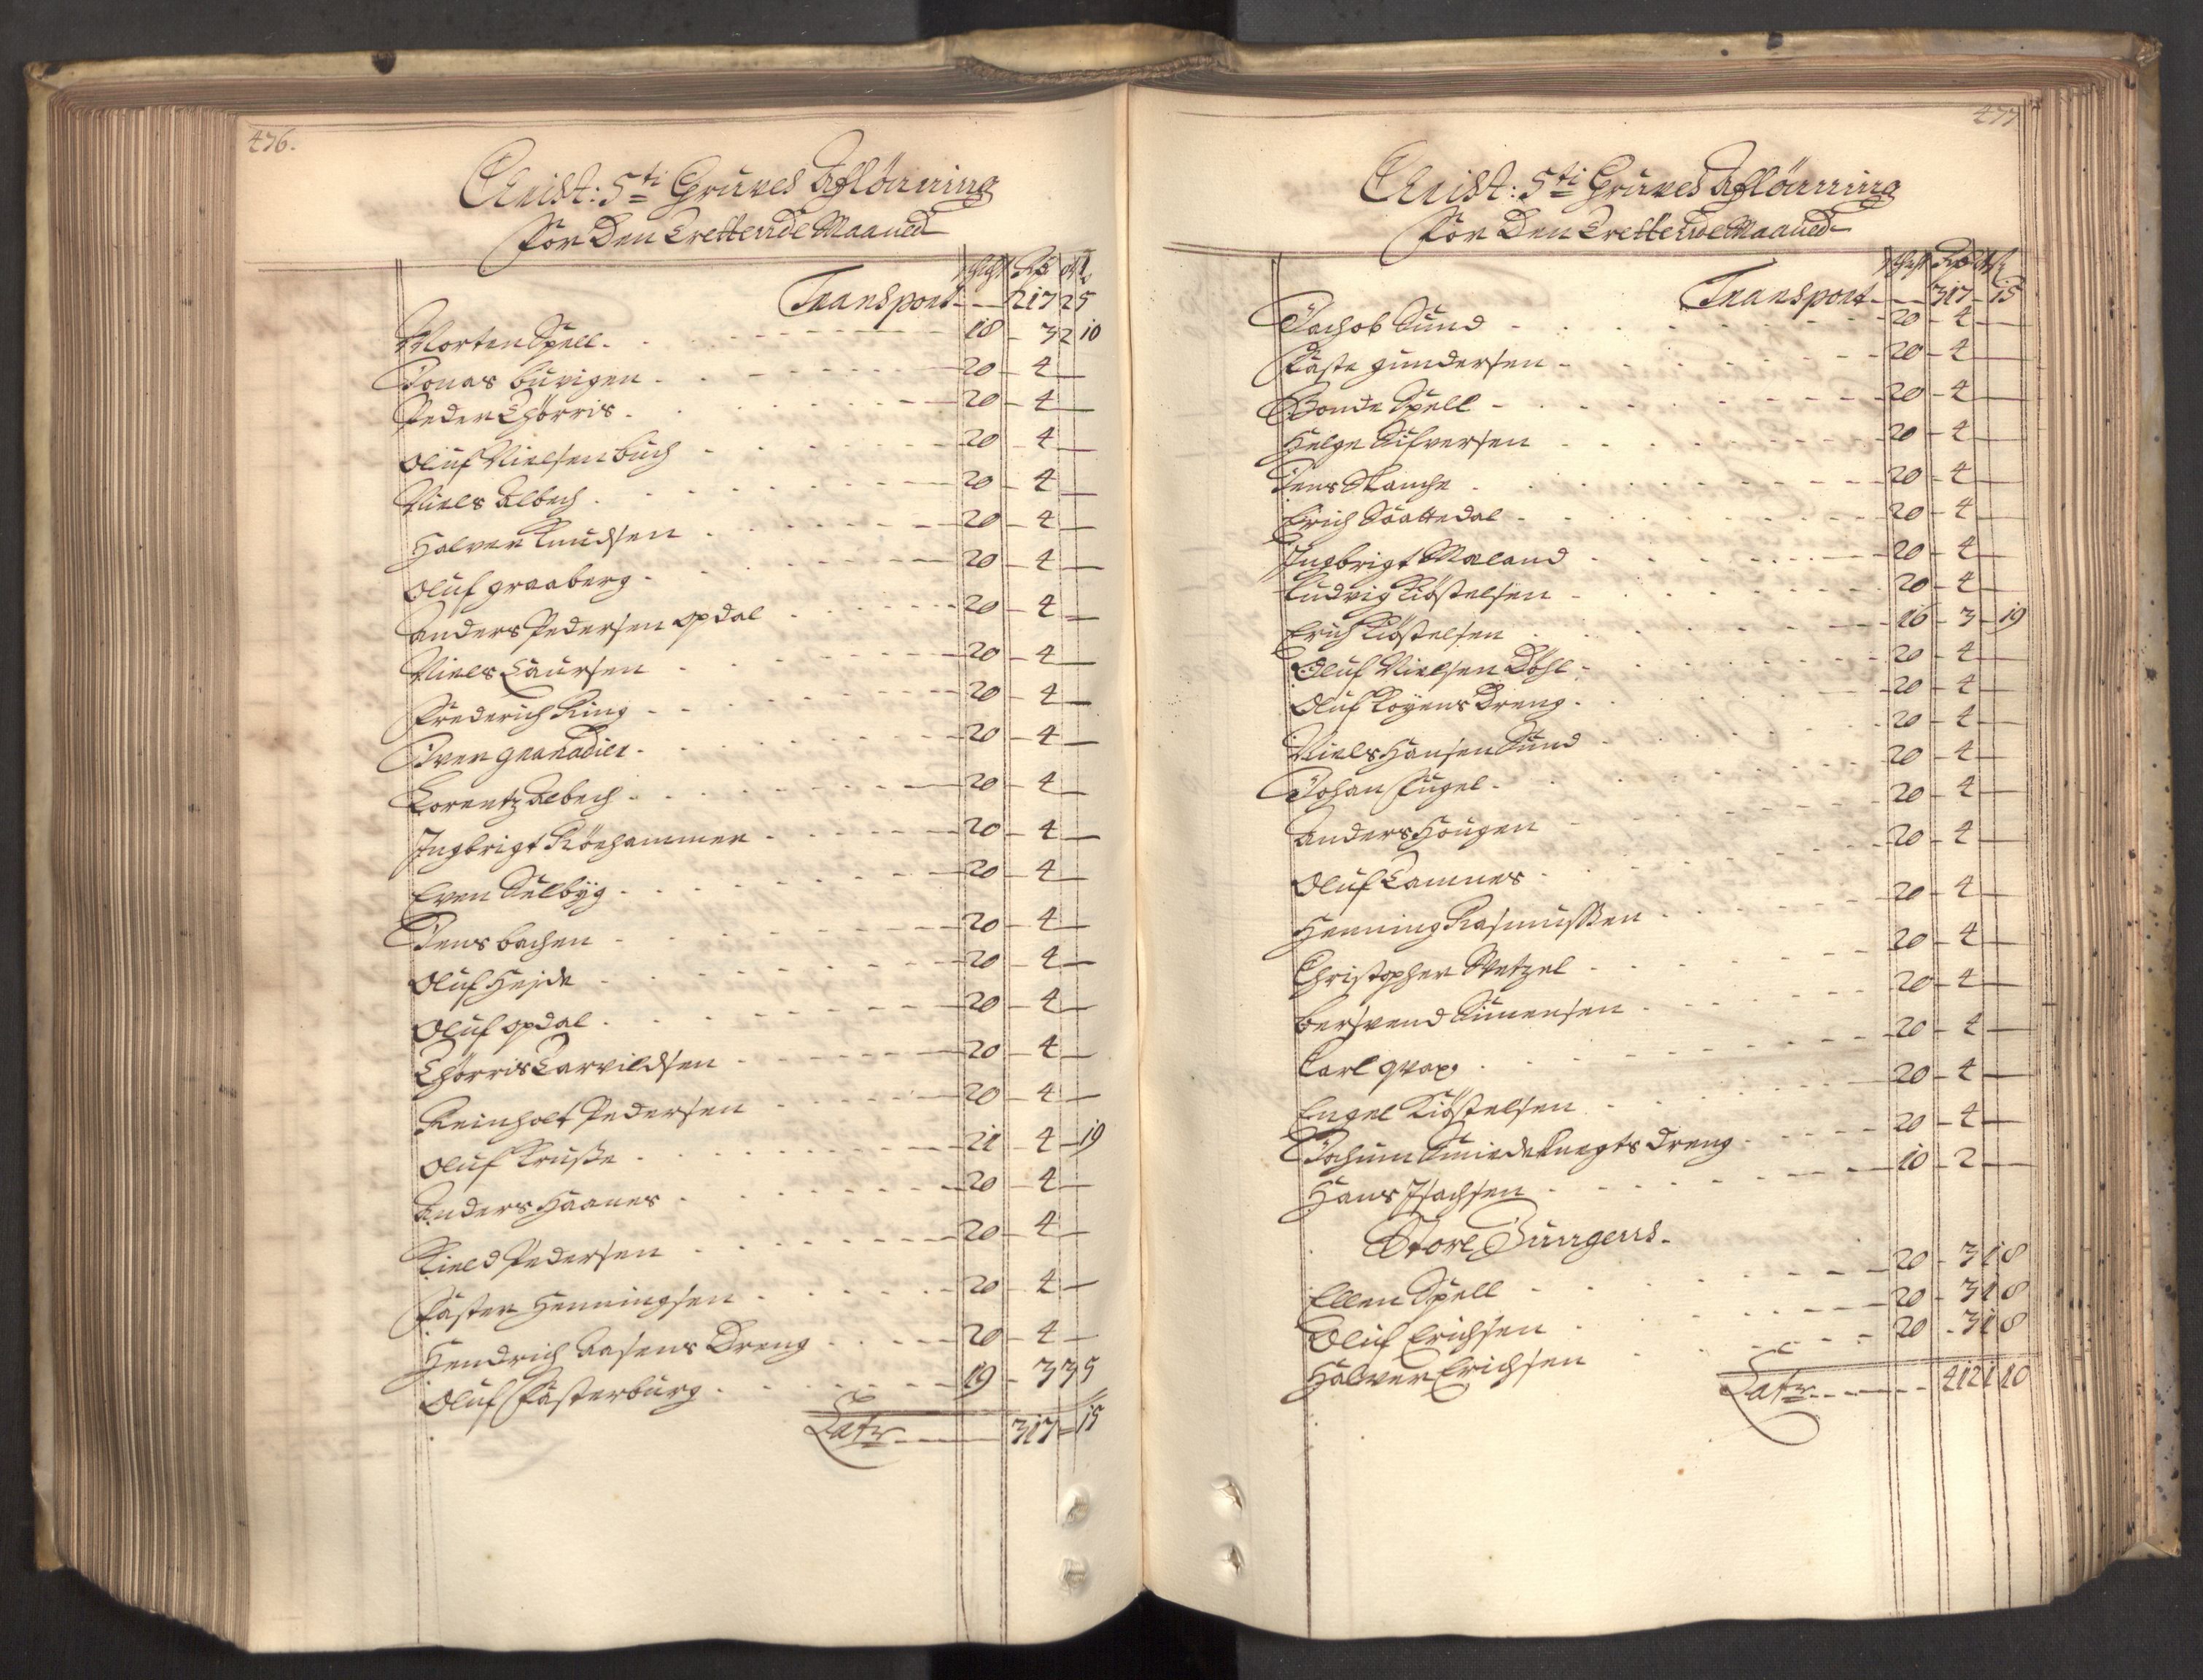 476.
Christ: 5ti Gruves Aflönning
For Den Trettende Maaned
Transport - - 217 2 5
Morten Spell - 18 - 3 2 10
Jonas buvigen - 20 - 4 -
Peder Thorris - 20 - 4 -
Oluf Nielsen buch - 20 - 4 -
Niels Albech - 20 - 4 -
Halver Knudsen - 20 - 4 -
Oluf graaberg - 20 - 4 -
Anders Pedersen opdal - 20 - 4 -
Niels Laursen - 20 - 4 -
Friderich King - 20 - 4 -
Iver granadier - 20 - 4 -
Lorentz Albech - 20 - 4 -
Ingbrigt Röehammer - 20 - 4 -
Even Selbyg - 20 - 4 -
Jens bachen - 20 - 4 -
Oluf Hejde - 20 - 4 -
Oluf opdal - 20 - 4 -
Thorris Tarvildsen - 20 - 4 -
Reinholt Pedersen - 20 - 4 -
Oluf Kruse - 21 - 4 - 19
Anders Haanes - 20 - 4 -
Kield Pedersen - 20 - 4 -
Faster Henningsen - 20 - 4 -
Hendrich Aasens Dreng - 20 - 4 -
Oluf Fasterburg - 19 - 3 3 5
Latr - 317 - 15
477
Christ: 5ti Gruves Aflönning
For Den Trettende Maaned
Transport - - 317 - 15
Jachob Sund - 20 - 4 -
Faste gundersen - 20 - 4 -
Bonde Spell - 20 - 4 -
Helge Silversen - 20 - 4 -
Jens Stanche - 20 - 4 -
Erich Saattedal - 20 - 4 -
Ingbrigt Maland - 20 - 4 -
Ludvig Kiöstelsen - 20 - 4 -
Erich Kiöstelsen - 16 - 3 - 19
Oluf Nielsen Döhl - 20 - 4 -
Oluf Koyens Dreng - 20 - 4 -
Niels Hansen Sund - 20 - 4 -
Johan Fugel - 20 - 4 -
Anders Hougen - 20 - 4 -
Oluf Tamnes - 20 - 4 -
Henning Rasmussen - 20 - 4 -
Christopher Wetzel - 20 - 4 -
Berswend Simensen - 20 - 4 -
Carl qvax - 20 - 4 -
Engel Kiöstelsen - 20 - 4 -
Jochum Smideknegts Dreng - 20 - 4 -
Hans Isachsen - 10 - 2 -
Store Jungens.
Ellen Spell - 20 - 3 1 8
Oluf Erichsen - 20 - 3 1 8
Halver Erichsen - 20 - 3 1 8
Latr - 412 1 10